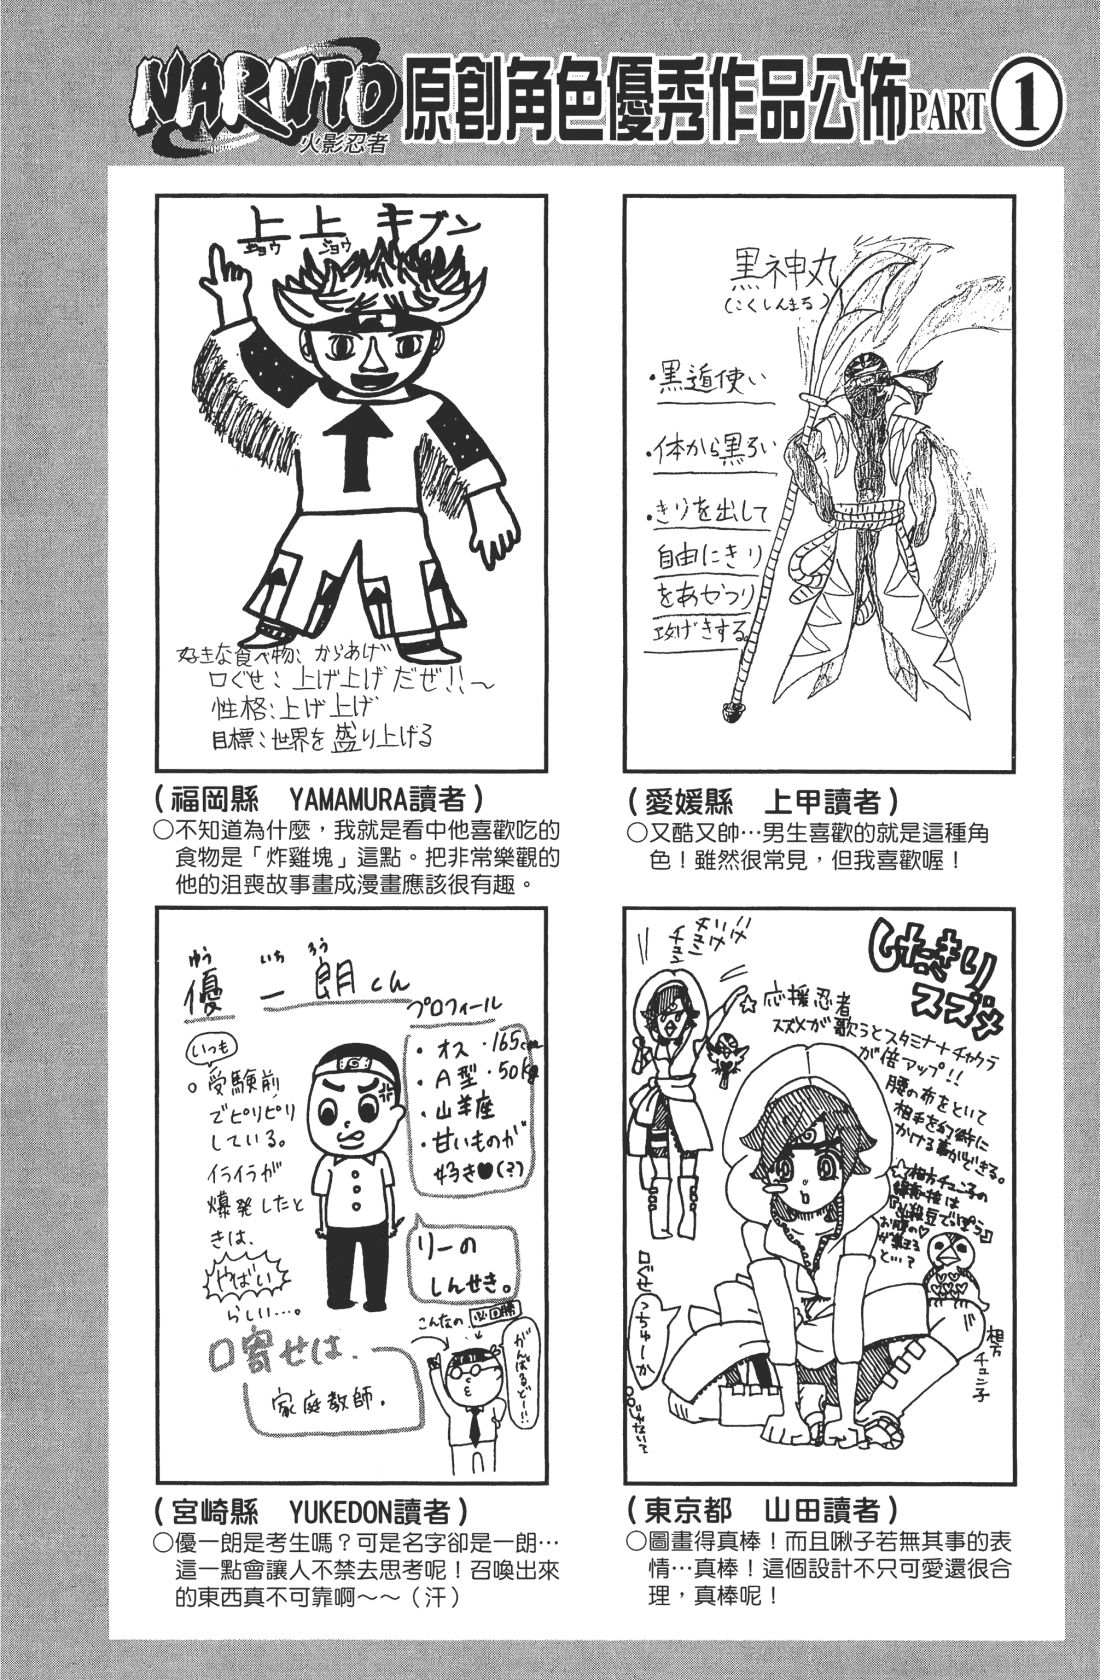 NARUTO
火影忍者
原創角色優秀作品公佈PART①
上上キブン
ジョウ ジョウ
好きな食べ物、からあげ
口ぐせ：上げ上げだぜ!!〜
性格：上げ上げ
目標：世界を盛り上げる
（福岡縣　YAMAMURA讀者）
○不知道為什麼，我就是看中他喜歡吃的
食物是「炸雞塊」這點。把非常樂觀的
他的沮喪故事畫成漫畫應該很有趣。
黒神丸
(こくしんまる)
・黒遁使い
・体から黒ろい
・きりを出して
自由にきり
をあやつり
攻げきする。
（愛媛縣　上甲讀者）
○又酷又帥…男生喜歡的就是這種角
色！雖然很常見，但我喜歡喔！
ゆう いち ろう
優一朗くん
プロフィール
・オス ・165cm
・A型 ・50kg
・山羊座
・甘いものが
好き(?)
いつも
。受験前
でピリピリ
している。
イライラが
爆発したと
きは、
やばい
らしい…。
りーの
しんせき。
口寄せは、
家庭教師。
こんなの
必勝
がんばるぞー!!
（宮崎縣　YUKEDON讀者）
○優一朗是考生嗎？可是名字卻是一朗…
這一點會讓人不禁去思考呢！召喚出來
的東西真不可靠啊～～（汗）
したきり
スズメ
☆応援忍者
スズメが歌うとスタミナ+チャクラ
が倍アップ!!
腰の布をといて
相手を幻術に
かける事ができる。
☆相方チュン子の
お腹の♡
が集まる
と…？
口ぐせ
っちゅーか
じゃないて
相方
チュン子
（東京都　山田讀者）
○圖畫得真棒！而且啾子若無其事的表
情…真棒！這個設計不只可愛還很合
理，真棒呢！